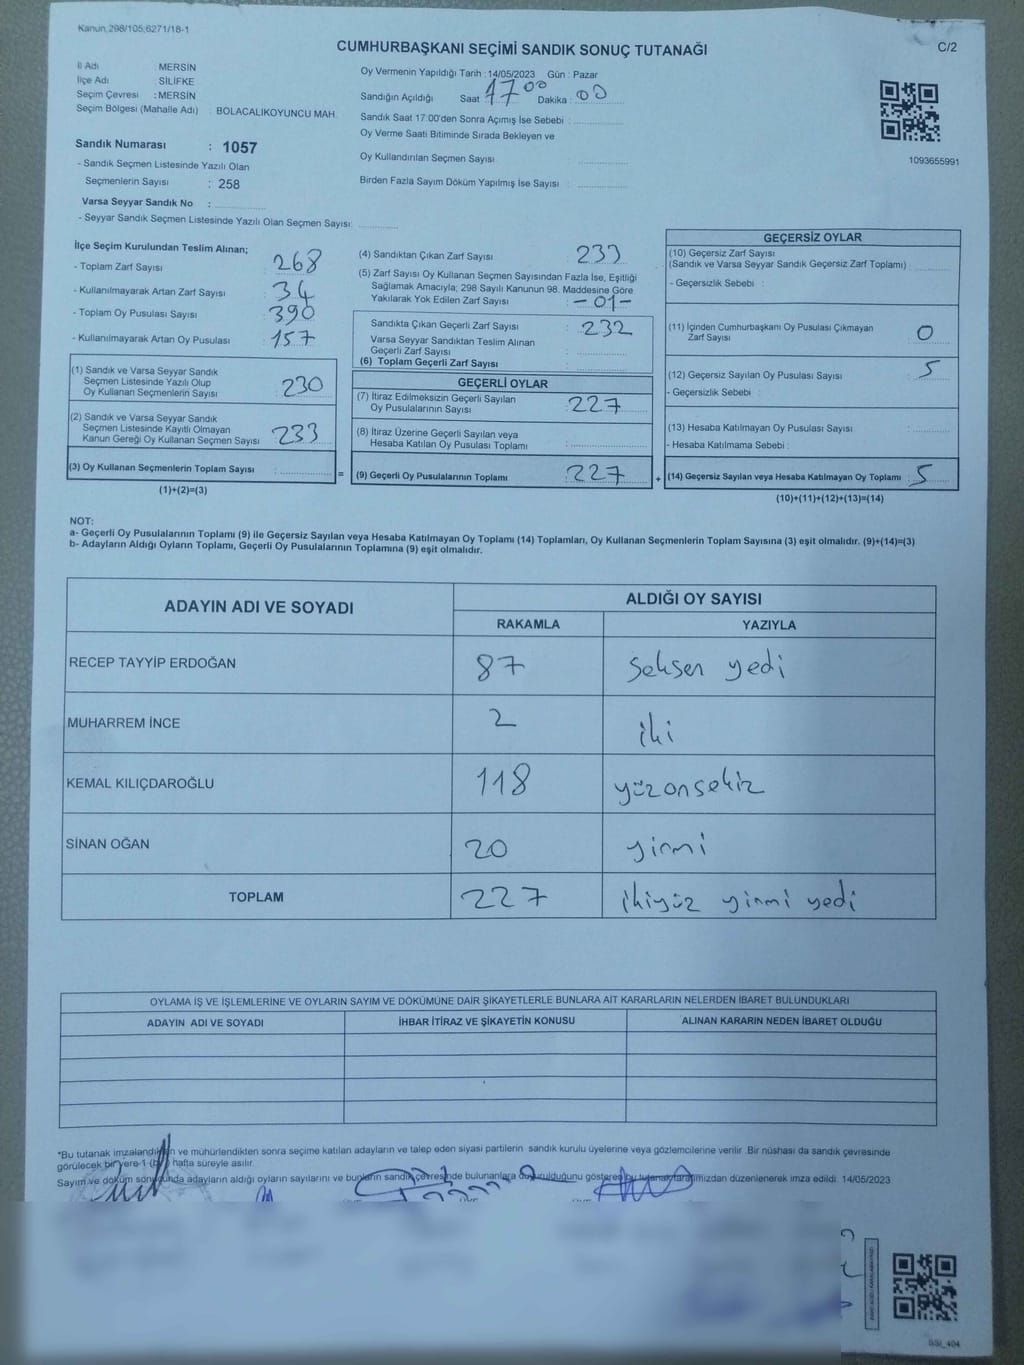 Kanun 298/105,6271/18-1
CUMHURBAŞKANI SEÇİMİ SANDIK SONUÇ TUTANAĞI
C/2
İl Adı : MERSİN
İlçe Adı : SİLİFKE
Seçim Çevresi : MERSİN
Seçim Bölgesi (Mahalle Adı) : BOLACALIKOYUNCU MAH.
Sandık Numarası : 1057
- Sandık Seçmen Listesinde Yazılı Olan
Seçmenlerin Sayısı : 258
Varsa Seyyar Sandık No :
- Seyyar Sandık Seçmen Listesinde Yazılı Olan Seçmen Sayısı:
Oy Vermenin Yapıldığı Tarih : 14/05/2023 Gün : Pazar
Sandığın Açıldığı Saat : 17 00 Dakika : 00
Sandık Saat 17.00'den Sonra Açımış İse Sebebi :
Oy Verme Saati Bitiminde Sırada Bekleyen ve
Oy Kullandırılan Seçmen Sayısı :
Birden Fazla Sayım Döküm Yapılmış İse Sayısı :
1093655991
İlçe Seçim Kurulundan Teslim Alınan;
- Toplam Zarf Sayısı : 268
- Kullanılmayarak Artan Zarf Sayısı : 34
- Toplam Oy Pusulası Sayısı : 390
- Kullanılmayarak Artan Oy Pusulası : 157
(1) Sandık ve Varsa Seyyar Sandık
Seçmen Listesinde Yazılı Olup
Oy Kullanan Seçmenlerin Sayısı : 230
(2) Sandık ve Varsa Seyyar Sandık
Seçmen Listesinde Kayıtlı Olmayan
Kanun Gereği Oy Kullanan Seçmen Sayısı : 233
(3) Oy Kullanan Seçmenlerin Toplam Sayısı :
(1)+(2)=(3)
(4) Sandıktan Çıkan Zarf Sayısı : 233
(5) Zarf Sayısı Oy Kullanan Seçmen Sayısından Fazla İse, Eşitliği
Sağlamak Amacıyla; 298 Sayılı Kanunun 98. Maddesine Göre
Yakılarak Yok Edilen Zarf Sayısı : -01-
Sandıkta Çıkan Geçerli Zarf Sayısı : 232
Varsa Seyyar Sandıktan Teslim Alınan
Geçerli Zarf Sayısı :
(6) Toplam Geçerli Zarf Sayısı :
GEÇERLİ OYLAR
(7) İtiraz Edilmeksizin Geçerli Sayılan
Oy Pusulalarının Sayısı : 227
(8) İtiraz Üzerine Geçerli Sayılan veya
Hesaba Katılan Oy Pusulası Toplamı :
= (9) Geçerli Oy Pusulalarının Toplamı : 227 +
GEÇERSİZ OYLAR
(10) Geçersiz Zarf Sayısı
(Sandık ve Varsa Seyyar Sandık Geçersiz Zarf Toplamı) :
- Geçersizlik Sebebi :
(11) İçinden Cumhurbaşkanı Oy Pusulası Çıkmayan
Zarf Sayısı : 0
(12) Geçersiz Sayılan Oy Pusulası Sayısı : 5
- Geçersizlik Sebebi :
(13) Hesaba Katılmayan Oy Pusulası Sayısı :
- Hesaba Katılmama Sebebi :
(14) Geçersiz Sayılan veya Hesaba Katılmayan Oy Toplamı : 5
(10)+(11)+(12)+(13)=(14)
NOT:
a- Geçerli Oy Pusulalarının Toplamı (9) ile Geçersiz Sayılan veya Hesaba Katılmayan Oy Toplamı (14) Toplamları, Oy Kullanan Seçmenlerin Toplam Sayısına (3) eşit olmalıdır. (9)+(14)=(3)
b- Adayların Aldığı Oyların Toplamı, Geçerli Oy Pusulalarının Toplamına (9) eşit olmalıdır.
ADAYIN ADI VE SOYADI ALDIĞI OY SAYISI
RAKAMLA YAZIYLA
RECEP TAYYİP ERDOĞAN 87 seksen yedi
MUHARREM İNCE 2 iki
KEMAL KILIÇDAROĞLU 118 yüzonsekiz
SİNAN OĞAN 20 yirmi
TOPLAM 227 ikiyüz yirmi yedi
OYLAMA İŞ VE İŞLEMLERİNE VE OYLARIN SAYIM VE DÖKÜMÜNE DAİR ŞİKAYETLERLE BUNLARA AİT KARARLARIN NELERDEN İBARET BULUNDUKLARI
ADAYIN ADI VE SOYADI İHBAR İTİRAZ VE ŞİKAYETİN KONUSU ALINAN KARARIN NEDEN İBARET OLDUĞU
*Bu tutanak imzalandıktan ve mühürlendikten sonra seçime katılan adayların ve talep eden siyasi partilerin sandık kurulu üyelerine veya gözlemcilerine verilir. Bir nüshası da sandık çevresinde
görülecek bir yere 1 (bir) hafta süreyle asılır.
Sayım ve döküm sonucunda adayların aldığı oyların sayılarını ve bunların sandık çevresinde bulunanlara duyurulduğunu gösteren bu tutanak tarafımızdan düzenlenerek imza edildi. 14/05/2023